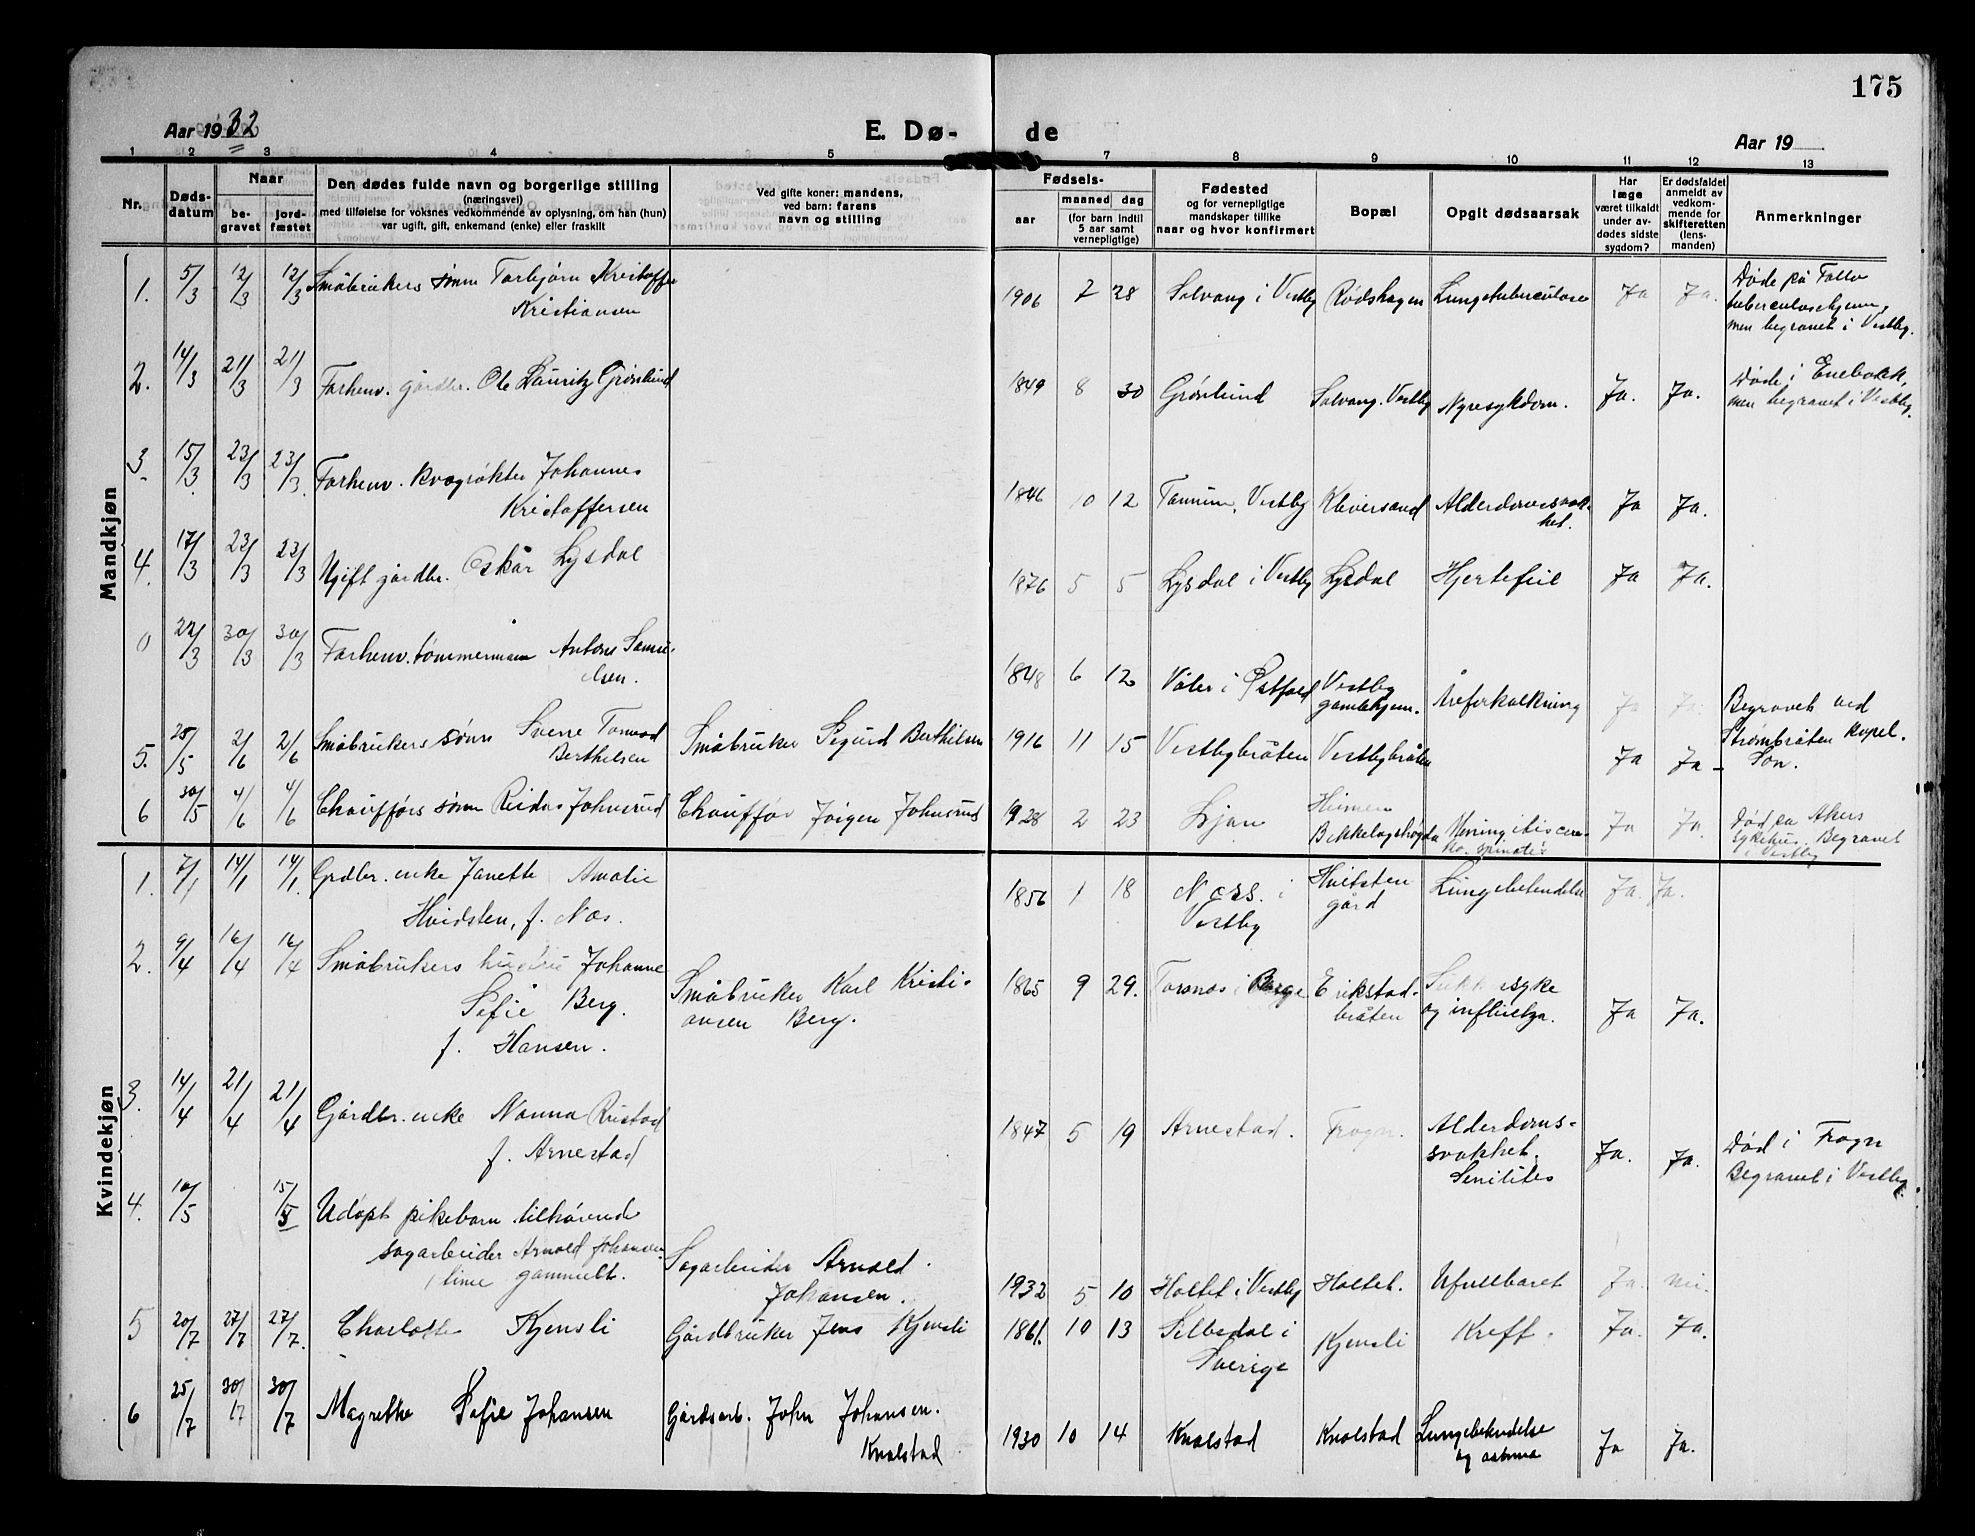 175
Aar 1932
E. Dø-
de
Aar 19
1 2 3 4 5 7 8 9 10 11 12 13
Nr.
Døds-
datum
Naar
be-
gravet
jord-
fæstet
Den dødes fulde navn og borgerlige stilling
(næringsvei)
med tilføielse for voksnes vedkommende av oplysning, om han (hun)
var ugift, gift, enkemand (enke) eller fraskilt
Ved gifte koner: mandens,
ved barn: farens
navn og stilling
Fødsels-
aar
maaned
dag
(for barn indtil
5 aar samt
vernepligtige)
Fødested
og for vernepligtige
mandskaper tillike
naar og hvor konfirmert
Bopæl
Opgit dødsaarsak
Har
læge
været tilkaldt
under av-
dødes sidste
sygdom?
Er dødsfaldet
anmeldt av
vedkom-
mende for
skifteretten
(lens-
manden)
Anmerkninger
Mandkjøn
1. 5/3 12/3 12/3 Småbrukers sønn Torbjørn Kristoffer
Kristiansen
1906 7 28 Solvang i Vestby Rødshagen Lungetuberculose Ja Ja.
Døde på Follo
tuberculosehjem,
men begravet i Vestby.
2. 14/3 21/3 21/3 Forhenv. gårdbr. Ole Lauritz Grønlund
1849 8 30 Grønlund Solvang. Vestby Nyresykdom. Ja. Ja.
Døde i Enebakk,
men begravet i Vestby.
3. 15/3 23/3 23/3. Forhenv. kvægrøkter Johannes
Kristoffersen
1846 10 12 Vestby Kleversand Alderdomssvak-
het. Ja Ja.
4. 17/3 23/3 23/3 Ugift gårdbr. Oskar Lysdal
1876 5 5 Lysdal i Vestby Lysdal Hjertefeil Ja Ja.
0 22/3 30/3 30/3 Forhenv. tømmermann Anton Samu-
elsen.
1848 6 12 Våler i Østfold Vestby
gamlehjem. Åreforkalkning Ja Ja.
5. 25/5 2/6 2/6 Småbrukers sønn Sverre Tormod
Berthelsen
Småbruker Sigurd Berthelsen
1916 11 15 Vestbybråten Vestbybråten Ja Ja -
Begravet ved
Strømbråten kapel.
Son.
6 30/5 4/6 4/6 Chaufførs sønn Reidar Johnsrud
Chauffør Jørgen Johnsrud
1928 2 23 Ljan Heimen
Bekkelagshøgda Meningitis cere-
bro spinalis Ja Ja.
Død på Akers
sykehus. Begravet
i Vestby
Kvindekjøn
1. 7/1 14/1 14/1. Grdbr. enke Janette Amalie
Hvidsten, f. Næs.
1856 1 18 Næss. i
Vestby Hvitsten
gård Lungebetendelse Ja. Ja.
2. 9/4 16/4 16/4 Småbrukers hustru Johanne
Sofie Berg.
f. Hansen.
Småbruker Karl Kristi-
ansen Berg.
1865 9 29. Torsnæs i Borge Erikstad-
bråten Sukkersyke
og influensa. Ja Ja.
3. 14/4 21/4 21/4 Gårdbr. enke Nanna Ristad
f. Arnestad
1847 5 19 Arnestad. Frogn. Alderdoms-
svakhet.
Senilites Ja. Ja.
Død i Frogn
Begravet i Vestby.
4. 10/5 15/5 Udøpt pikebarn tilhørende
sagarbeider Arnold Johansen
1 time gammelt.
Sagarbeider Arnold
Johansen.
1932 5 10 Holtet i Vestby Holtet. Ufullbåret Ja. nei.
5 20/7 27/7 27/7. Charlotte Kjensli
Gårdbruker Jens Kjensli
1861. 10 13 Silbodal i
Sverige Kjensli Kreft. Ja. Ja.
6 25/7 30/7 30/7 Magrethe Sofie Johansen
Gårdsarb. John Johansen.
Knolstad
1930 10 14 Knolstad Knolstad Lungebetendelse
og astma Ja Ja.